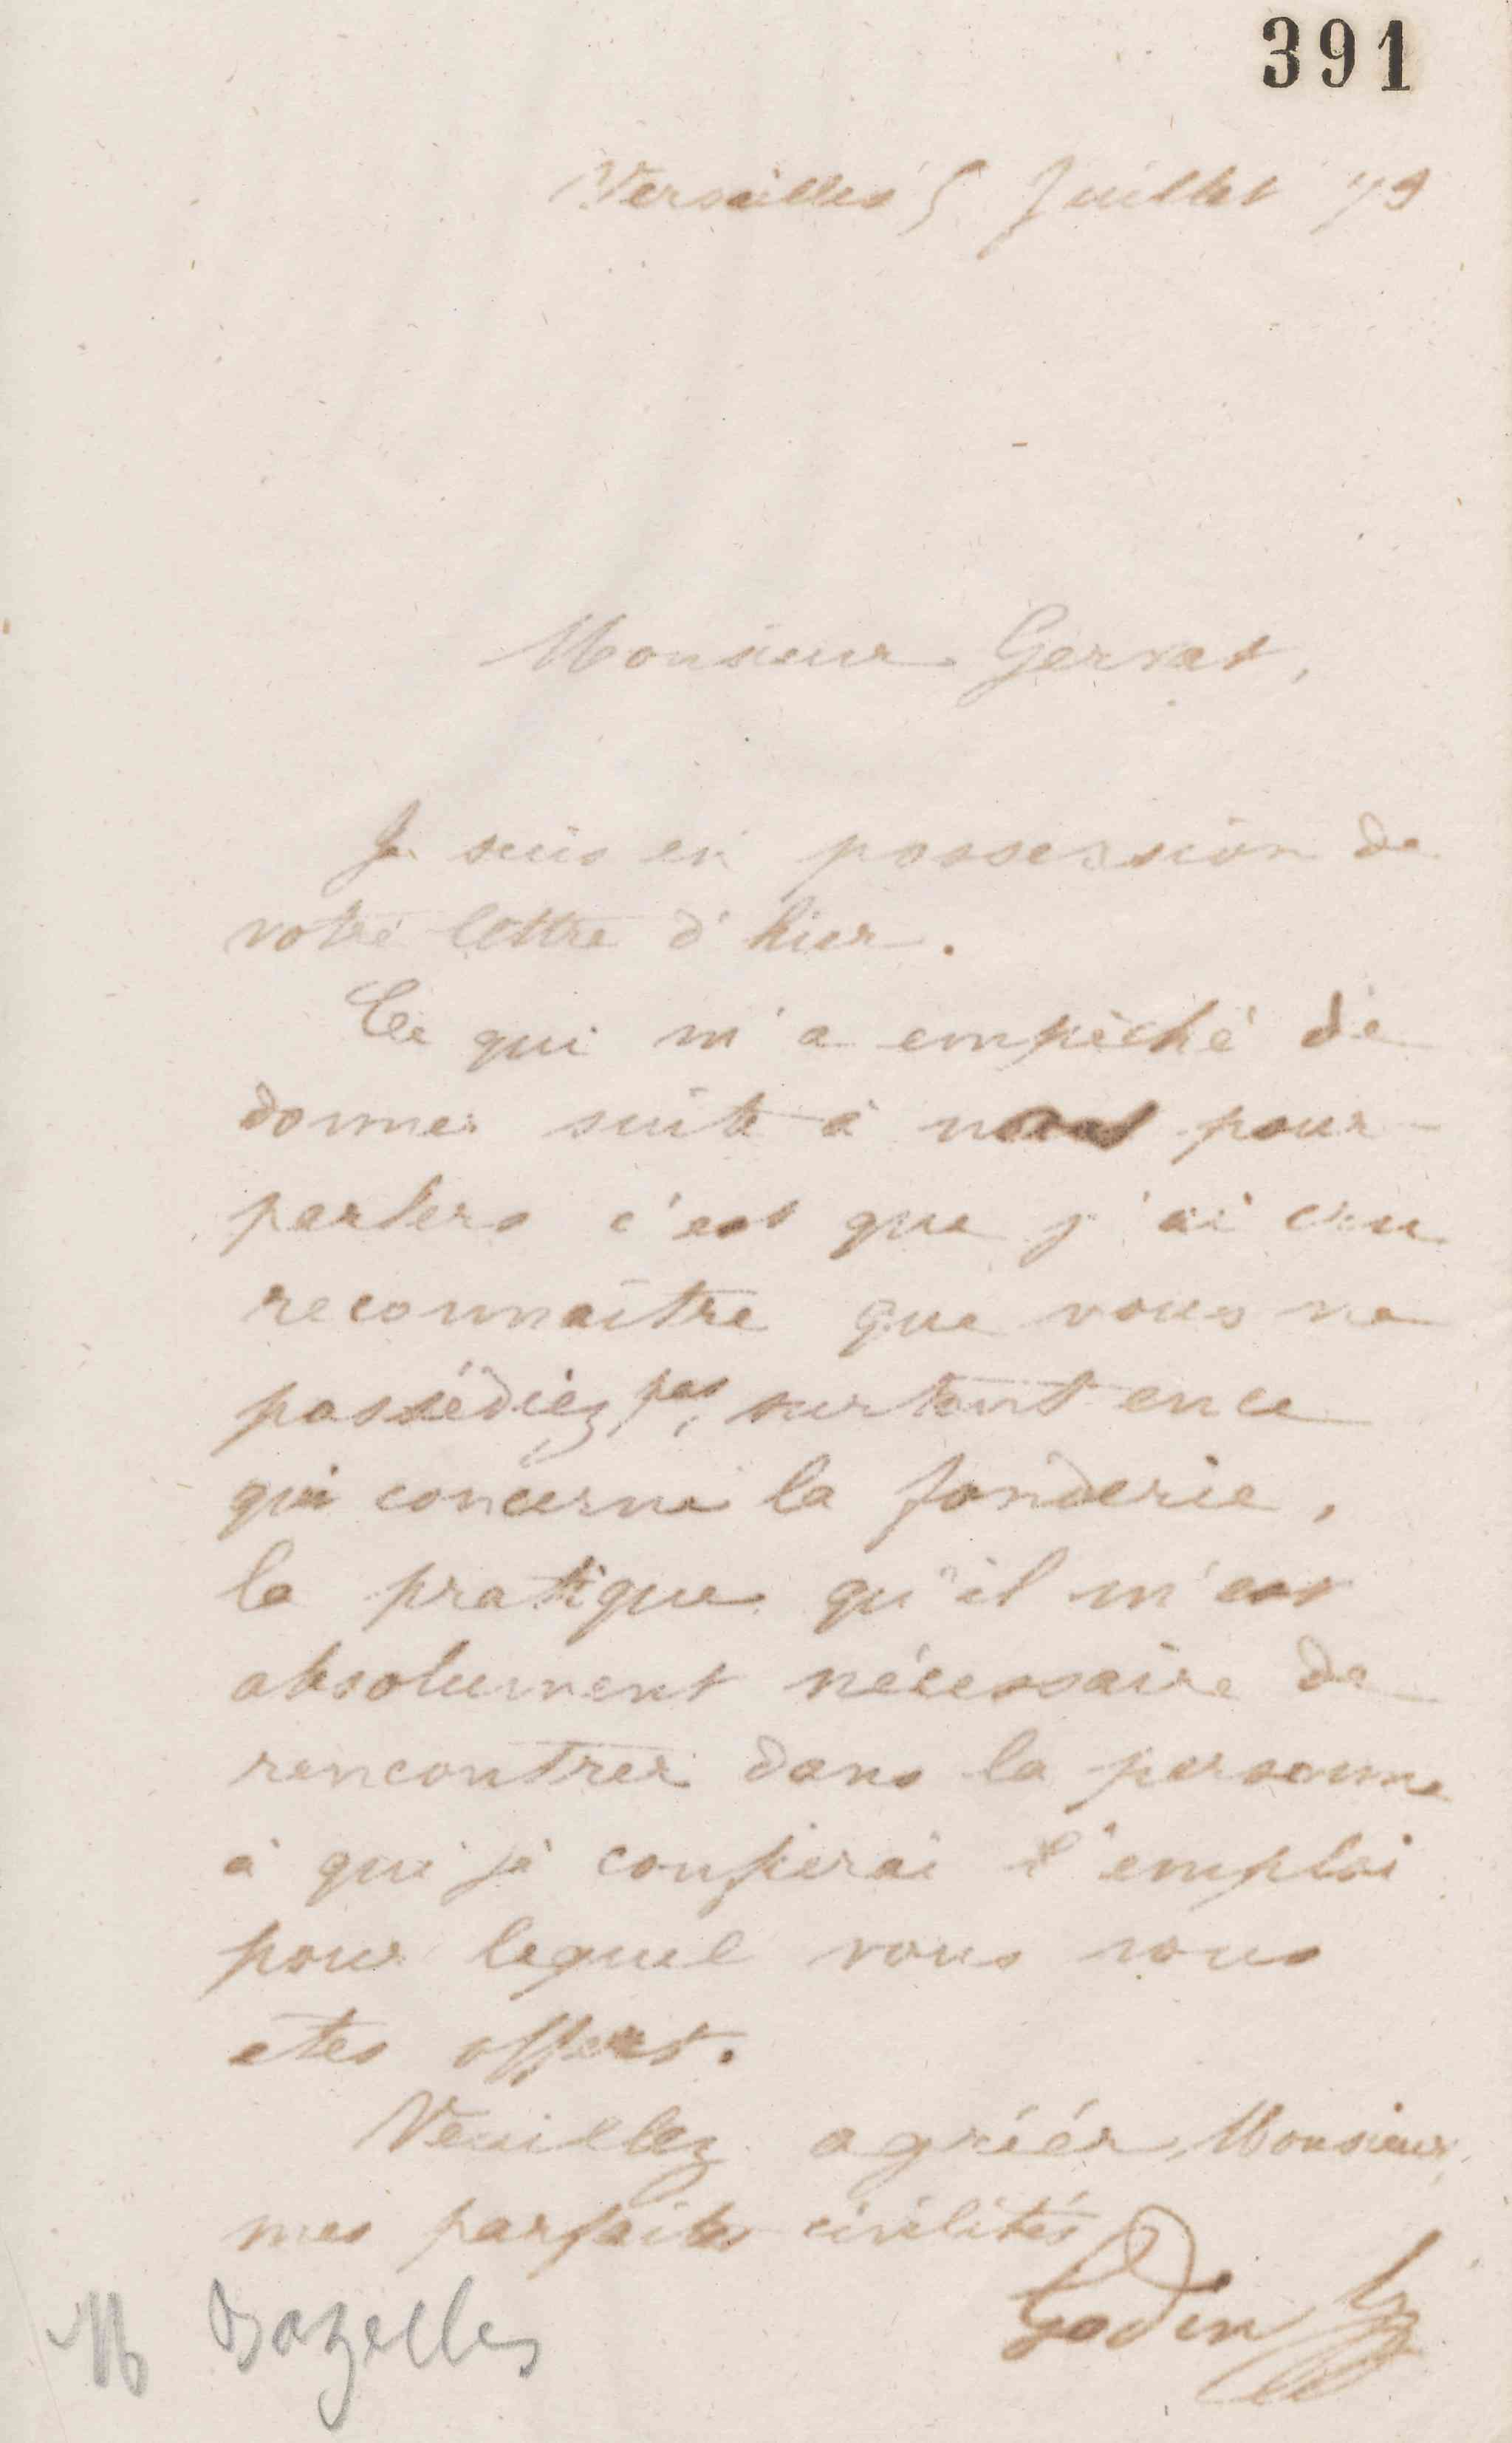 391
Versailles 5 Juillet 73
Monsieur Gervat,
Je suis en possession de
votre lettre d'hier.
Ce qui m'a empêché de
donner suite à nos pour-
parlers c'est que j'ai cru
reconnaître que vous ne
possédiez pas, surtout en ce
qui concerne la fonderie,
la pratique qu'il m'est
absolument nécessaire de
rencontrer dans la personne
à qui je confierai l'emploi
pour lequel vous vous
êtes offert.
Veuillez agréer, Monsieur,
mes parfaites civilités
Godin
M Bazelles